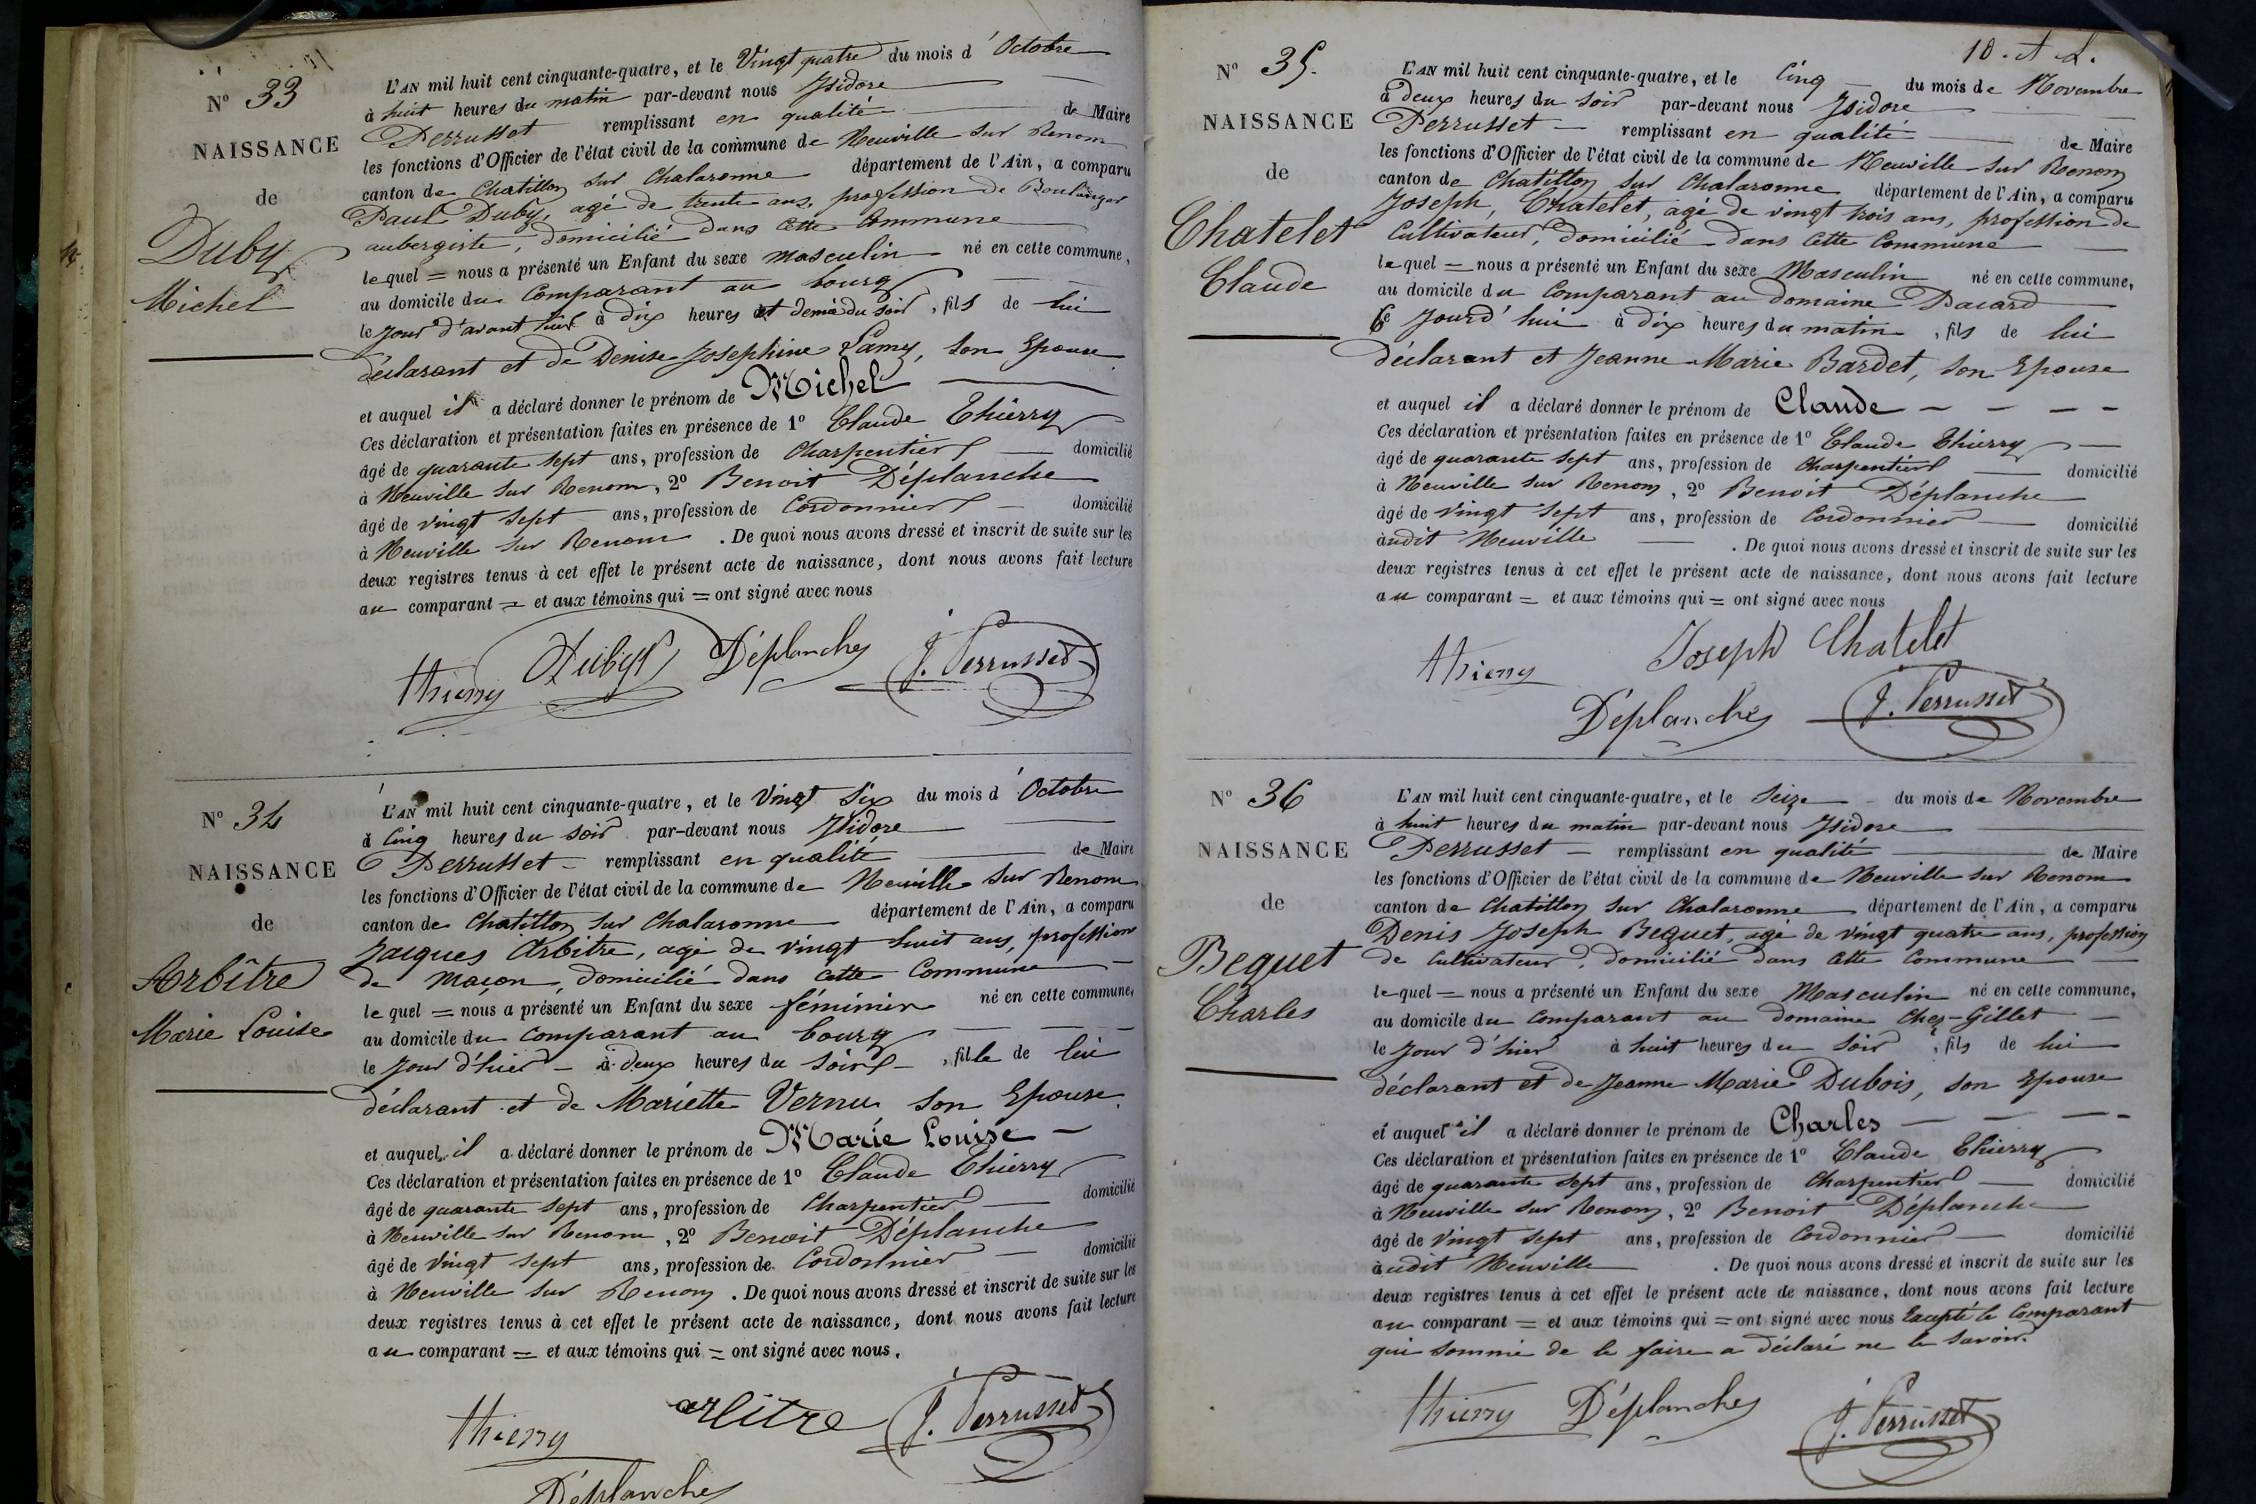 Nº 33
NAISSANCE
de
Duby
Michel
L'AN mil huit cent cinquante-quatre, et le Vingt quatre du mois d'Octobre
à huit heures du matin par-devant nous Isidore
Perrusset remplissant en qualité de Maire
les fonctions d'Officier de l'état civil de la commune de Neuville sur Renom
canton de Chatillon sur Chalaronne département de l'Ain, a comparu
Paul Duby, agé de trente ans, profession de Boulanger
aubergiste, domicilié dans cette Commune
lequel = nous a présenté un Enfant du sexe masculin né en cette commune,
au domicile du Comparant au bourg
le jour d'avant hier à dix heures et demie du soir, fils de lui
déclarant et de Denise Josephine Lamy, son Epouse
et auquel il a déclaré donner le prénom de Michel
Ces déclaration et présentation faites en présence de 1º Claude Thierry
âgé de quarante sept ans, profession de Charpentier domicilié
à Neuville sur Renom, 2º Benoit Déplanche
âgé de vingt sept ans, profession de Cordonnier domicilié
à Neuville sur Renom. De quoi nous avons dressé et inscrit de suite sur les
deux registres tenus à cet effet le présent acte de naissance, dont nous avons fait lecture
au comparant = et aux témoins qui = ont signé avec nous
Thierry Duby Déplanche J. Perrusset
Nº 34
NAISSANCE
de
Arbître
Marie Louise
L'AN mil huit cent cinquante-quatre, et le Vingt Six du mois d'Octobre
à Cinq heures du soir par-devant nous Isidore
Perrusset remplissant en qualité de Maire
les fonctions d'Officier de l'état civil de la commune de Neuville sur Renom
canton de Chatillon sur Chalaronne département de l'Ain, a comparu
Jacques Arbitre, agé de vingt huit ans, profession
de maçon, domicilié dans cette Commune
lequel = nous a présenté un Enfant du sexe féminin né en cette commune,
au domicile du comparant au bourg
le jour d'hier à deux heures du soir, fille de lui
déclarant et de Mariette Vernu son Epouse
et auquel il a déclaré donner le prénom de Marie Louise
Ces déclaration et présentation faites en présence de 1º Claude Thierry
âgé de quarante sept ans, profession de Charpentier domicilié
à Neuville sur Renom, 2º Benoit Déplanche
âgé de vingt sept ans, profession de Cordonnier domicilié
à Neuville sur Renom. De quoi nous avons dressé et inscrit de suite sur les
deux registres tenus à cet effet le présent acte de naissance, dont nous avons fait lecture
au comparant = et aux témoins qui = ont signé avec nous.
Thierry arbitre J. Perrusset
Déplanche
Nº 35
NAISSANCE
de
Chatelet
Claude
L'AN mil huit cent cinquante-quatre, et le Cinq du mois de Novembre
à deux heures du soir par-devant nous Isidore
Perrusset remplissant en qualité de Maire
les fonctions d'Officier de l'état civil de la commune de Neuville sur Renom
canton de Chatillon sur Chalaronne département de l'Ain, a comparu
Joseph, Chatelet, agé de vingt trois ans, profession de
Cultivateur, domicilié dans cette Commune
lequel = nous a présenté un Enfant du sexe Masculin né en cette commune,
au domicile du Comparant au domaine Pacard
Ce Jourd'hui à dix heures du matin, fils de lui
déclarant et Jeanne Marie Bardet, son Epouse
et auquel il a déclaré donner le prénom de Claude
Ces déclaration et présentation faites en présence de 1º Claude Thierry
âgé de quarante sept ans, profession de Charpentier domicilié
à Neuville sur Renom, 2º Benoit Déplanche
âgé de Vingt Sept ans, profession de Cordonnier domicilié
audit Neuville. De quoi nous avons dressé et inscrit de suite sur les
deux registres tenus à cet effet le présent acte de naissance, dont nous avons fait lecture
au comparant = et aux témoins qui = ont signé avec nous
Thierry Joseph Chatelet
Déplanche J. Perrusset
Nº 36
NAISSANCE
de
Beguet
Charles
L'AN mil huit cent cinquante-quatre, et le Seize du mois de Novembre
à huit heures du matin par-devant nous Isidore
Perrusset remplissant en qualité de Maire
les fonctions d'Officier de l'état civil de la commune de Neuville sur Renom
canton de Chatillon sur Chalaronne département de l'Ain, a comparu
Denis Joseph Beguet, agé de vingt quatre ans, profession
de Cultivateur, domicilié dans cette Commune
lequel = nous a présenté un Enfant du sexe Masculin né en cette commune,
au domicile du Comparant au domaine Chez-Gillet
le jour d'hier à huit heures du soir, fils de lui
déclarant et de Jeanne Marie Dubois, son Epouse
et auquel il a déclaré donner le prénom de Charles
Ces déclaration et présentation faites en présence de 1º Claude Thierry
âgé de quarante sept ans, profession de Charpentier domicilié
à Neuville sur Renom, 2º Benoit Déplanche
âgé de Vingt sept ans, profession de Cordonnier domicilié
audit Neuville. De quoi nous avons dressé et inscrit de suite sur les
deux registres tenus à cet effet le présent acte de naissance, dont nous avons fait lecture
au comparant = et aux témoins qui = ont signé avec nous Excepté le Comparant
qui sommé de le faire a déclaré ne le savoir.
Thierry Déplanche J. Perrusset